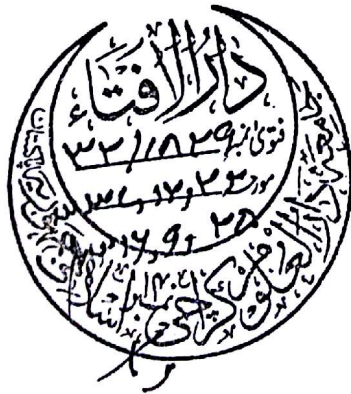 دَارُ الْاِفْتَاء
فتویٰ نمبر ۳۲/۱۸۲۹
۲۳٫۱۲٫۳۷
۲۵٫۹٫۱۶
جامعہ دارالعلوم کراچی